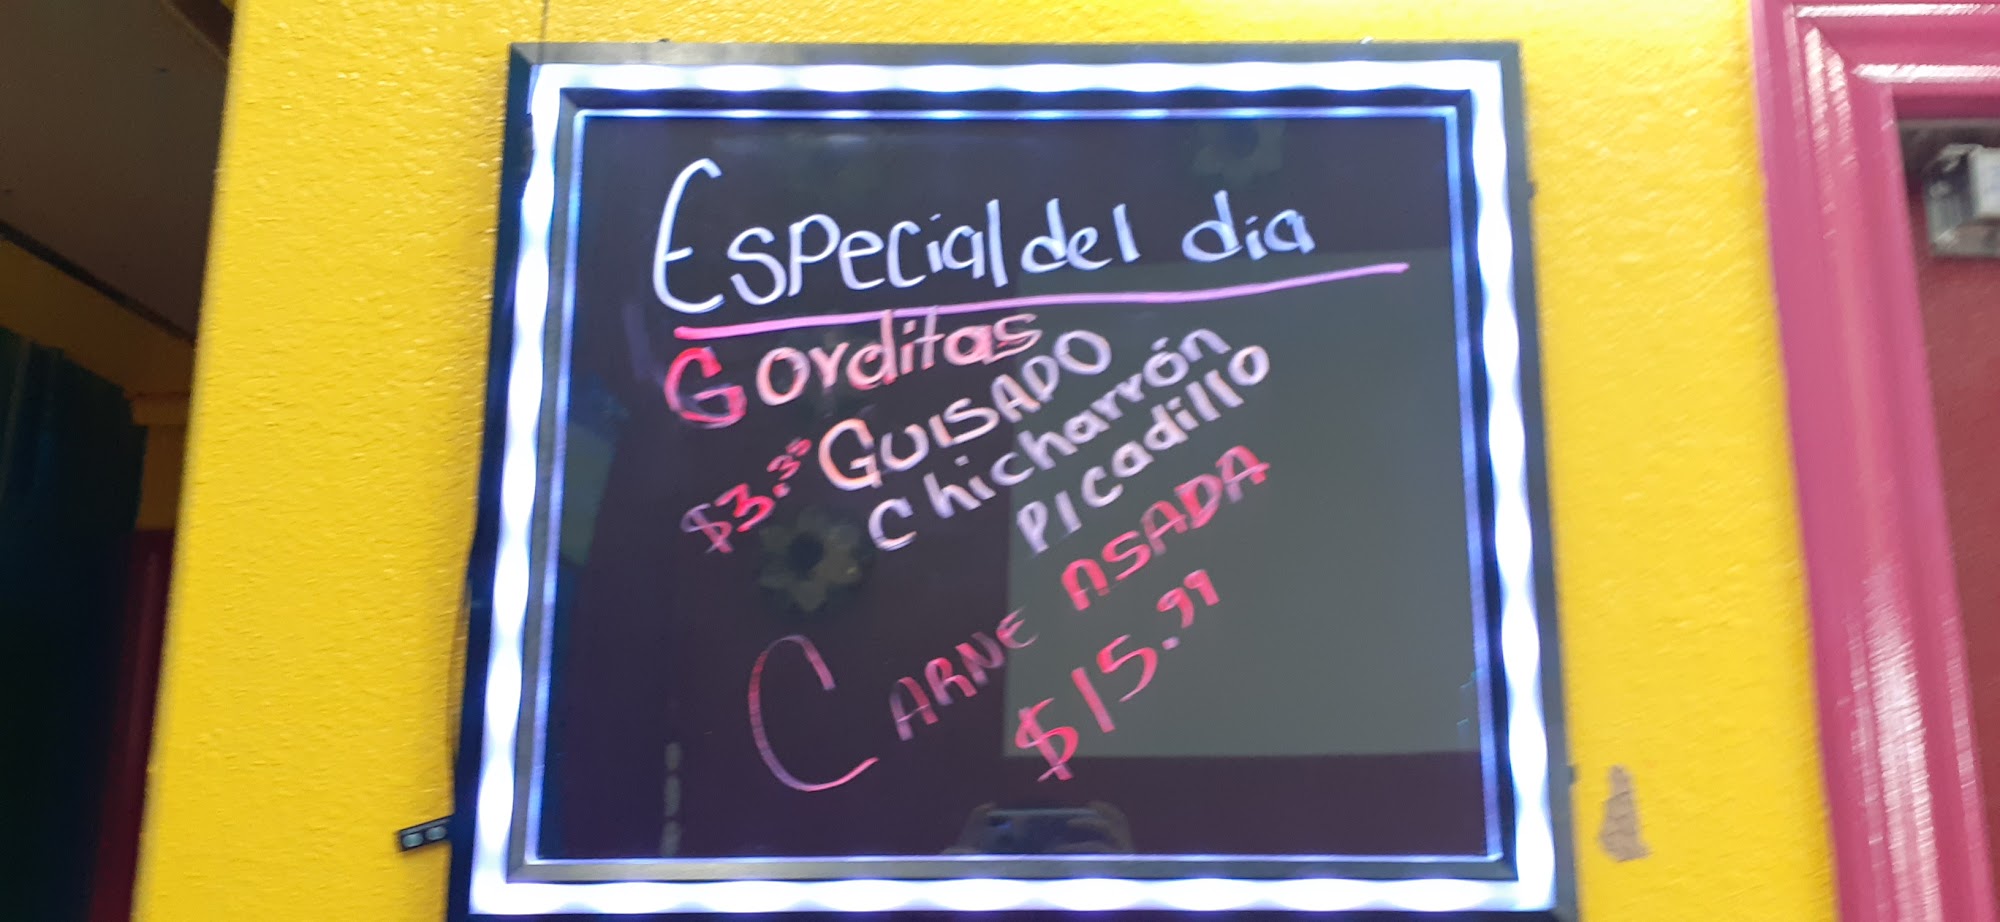 Especial del dia
Gorditas
$3.35 GUISADO
Chicharrón
Picadillo
CARNE ASADA
$15.99